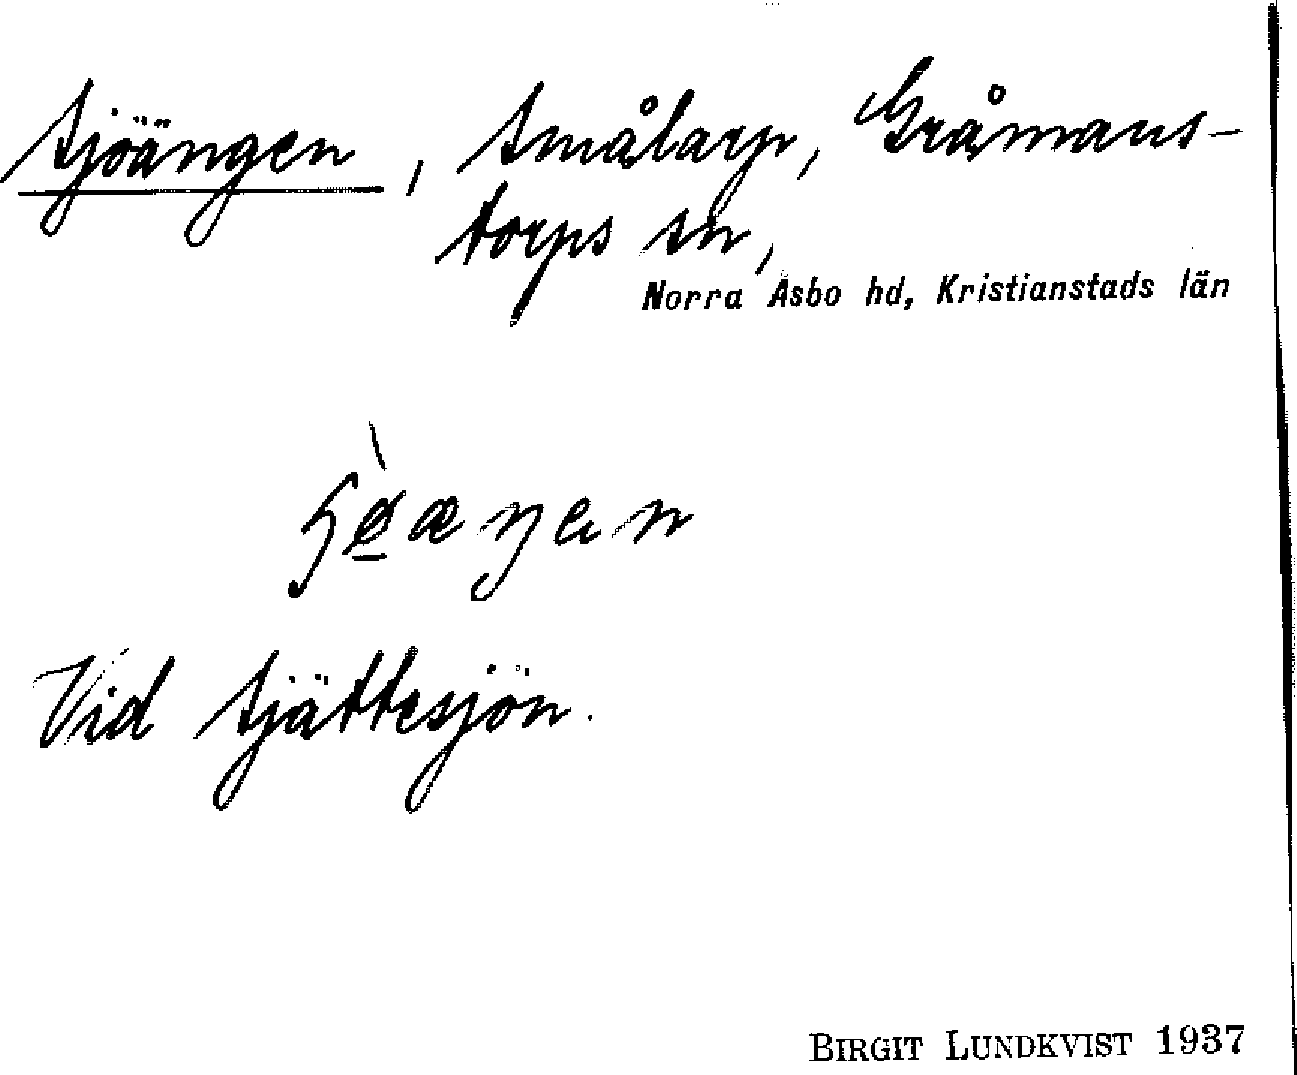 Sjöängen, Smålarp, Gråmans-
torps sn,
Norra Åsbo hd, Kristianstads län
Vid Sjättesjön.
BIRGIT LUNDKVIST 1937